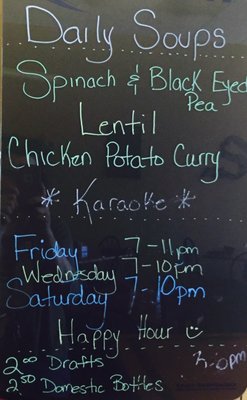 Daily Soups
Spinach & Black Eyed
Pea
Lentil
Chicken Potato Curry
* Karaoke *
Friday 7-11pm
Wednesday 7-10pm
Saturday 7-10pm
Happy Hour
2.00 Drafts
2.50 Domestic Bottles